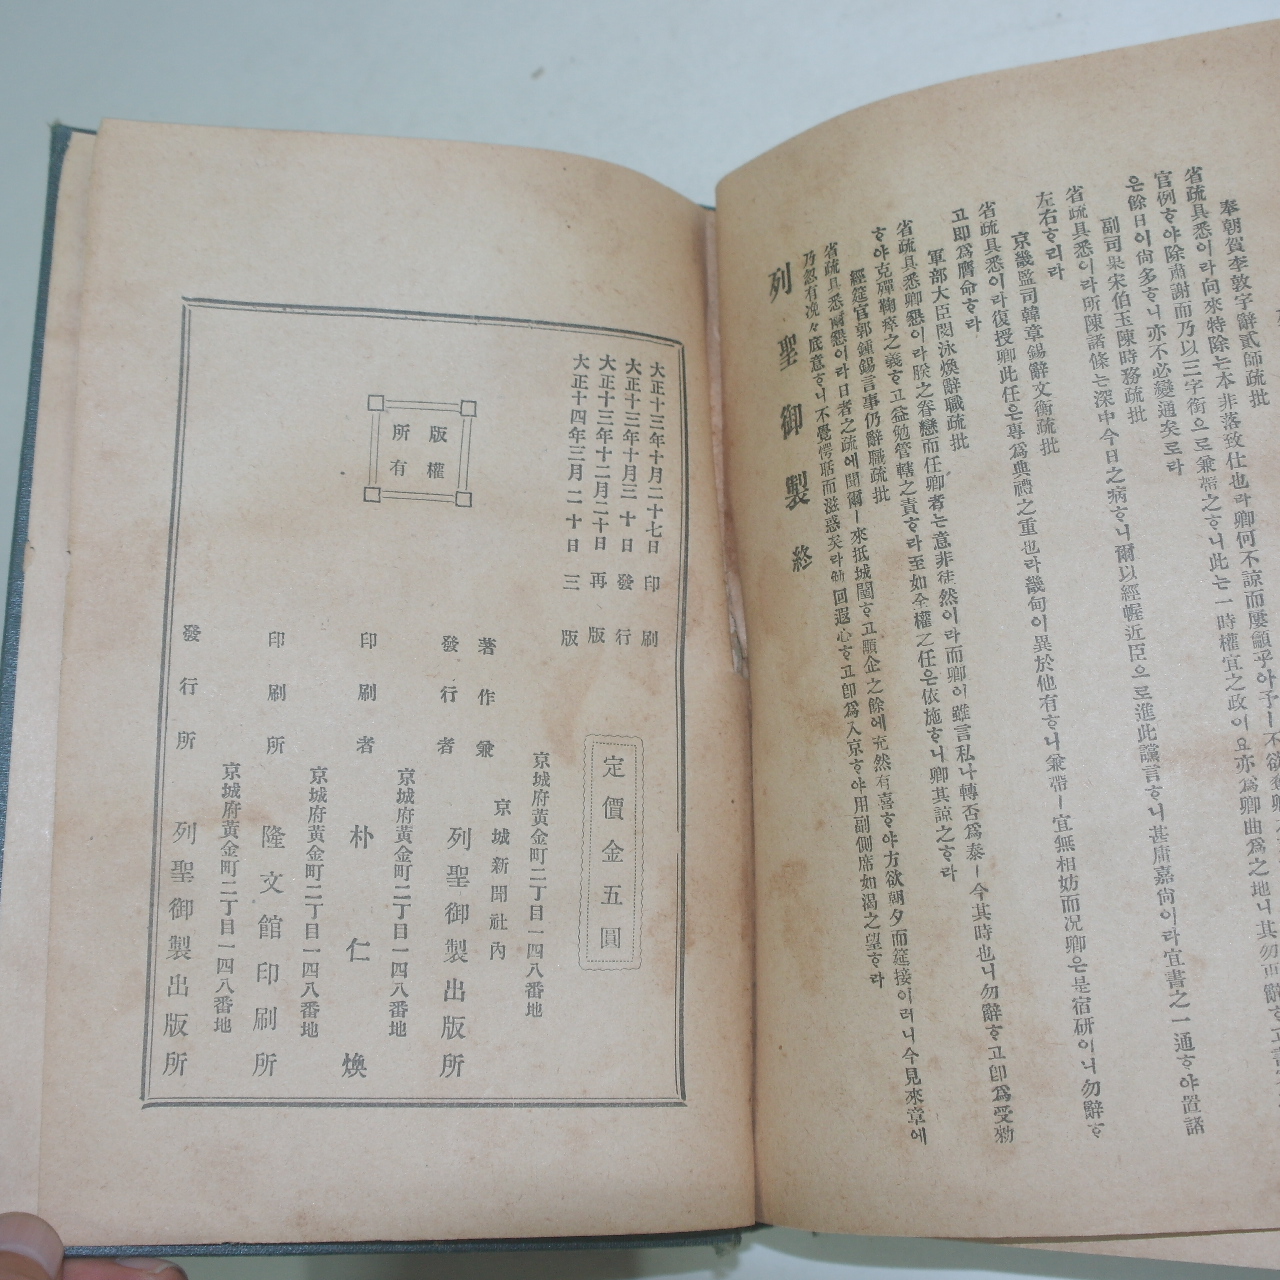 奉朝賀李敦宇辭貳師疏批
省疏具悉이라向來特除는本非落致仕也라卿何不諒而屢顲乎아予ㅣ不欲
官例ᄒᆞ야除肅謝而乃以三字銜으로兼帶之ᄒᆞ니此는一時權宜之政이요亦爲卿曲爲之地니其勿更辭ᄒᆞ고
은餘日이尙多ᄒᆞ니亦不必變通矣로라
副司果宋伯玉陳時務疏批
省疏具悉이라所陳諸條는深中今日之病ᄒᆞ니爾以經幄近臣으로進此讜言ᄒᆞ니甚庸嘉尙이라宜書之一通ᄒᆞ야置諸
左右ᄒᆞ리라
京畿監司韓章錫辭文衡疏批
省疏具悉이라復授卿此任은專爲典禮之重也라畿甸이異於他有ᄒᆞ니兼帶ㅣ宜無相妨而况卿은是宿研이니勿辭ᄒᆞ
고即爲膺命ᄒᆞ라
軍部大臣閔泳煥辭職疏批
省疏具悉卿懇이라朕之眷戀而任卿者는意非徒然이라而卿이雖言私나轉否爲泰ㅣ今其時也니勿辭ᄒᆞ고卽爲受勅
ᄒᆞ야克殫鞠瘁之義ᄒᆞ고益勉管轄之責ᄒᆞ라至如全權之任은依施ᄒᆞ니卿其諒之ᄒᆞ라
經筵官郭鍾錫言事仍辭職疏批
省疏具悉爾懇이라日者之疏에聞爾ㅣ來抵城闉ᄒᆞ고顒企之餘에充然有喜ᄒᆞ야方欲朝夕而筵接이러니今見來章에
乃忽有浼々底意ᄒᆞ니不覺愕眙而滋惑矣라幡回遐心ᄒᆞ고卽爲入京ᄒᆞ야用副側席如渴之望ᄒᆞ라
列聖御製 終
大正十三年十月二十七日 印刷
大正十三年十月三十日 發行
大正十三年十二月二十日 再版
大正十四年三月二十日 三版
版權
所有
定價金五圓
京城府黃金町二丁目一四八番地
京城新聞社內
著作兼
發行者 列聖御製出版所
京城府黃金町二丁目一四八番地
印刷者 朴仁煥
京城府黃金町二丁目一四八番地
印刷所 隆文館印刷所
京城府黃金町二丁目一四八番地
發行所 列聖御製出版所